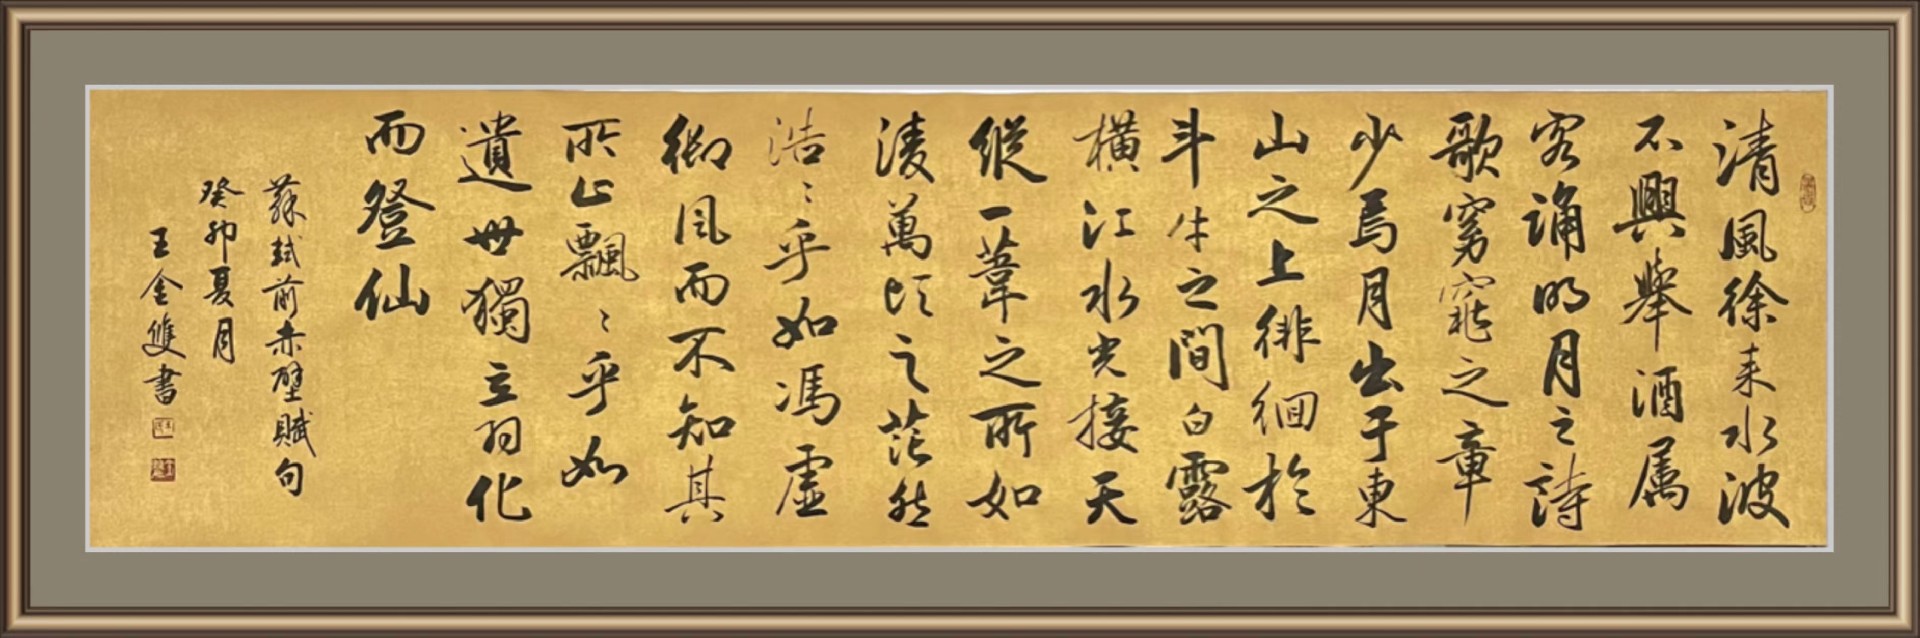 清風徐来水波
不興舉酒属
客誦明月之詩
歌窈窕之章
少焉月出于東
山之上徘徊於
斗牛之間白露
横江水光接天
縱一葦之所如
淩萬頃之茫然
浩〻乎如馮虛
御風而不知其
所止飄〻乎如
遺世獨立羽化
而登仙
蘇軾前赤壁賦句
癸卯夏月
王金雙書